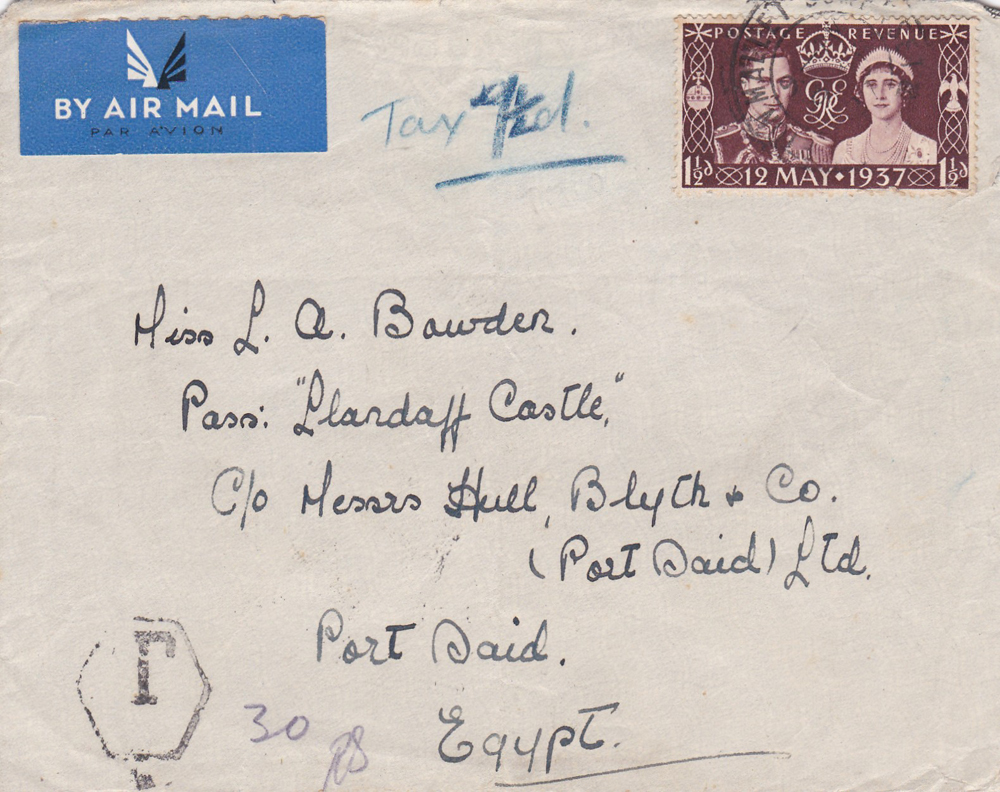 BY AIR MAIL
PAR AVION
Tax d.
POSTAGE REVENUE
1½d 12 MAY • 1937 1½d
Miss L. A. Bowden.
Pass: "Llandaff Castle,"
C/o Messrs Hull, Blyth & Co.
(Port Said) Ltd.
Port Said.
Egypt.
T
30